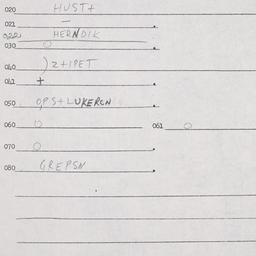 020 HUST+
021 —
022 HERNDIK
030 O
040 )Z+IPET
041 +
050 O,PS+LUKERCN
060 O 061 O
070 O
080 GREPSN